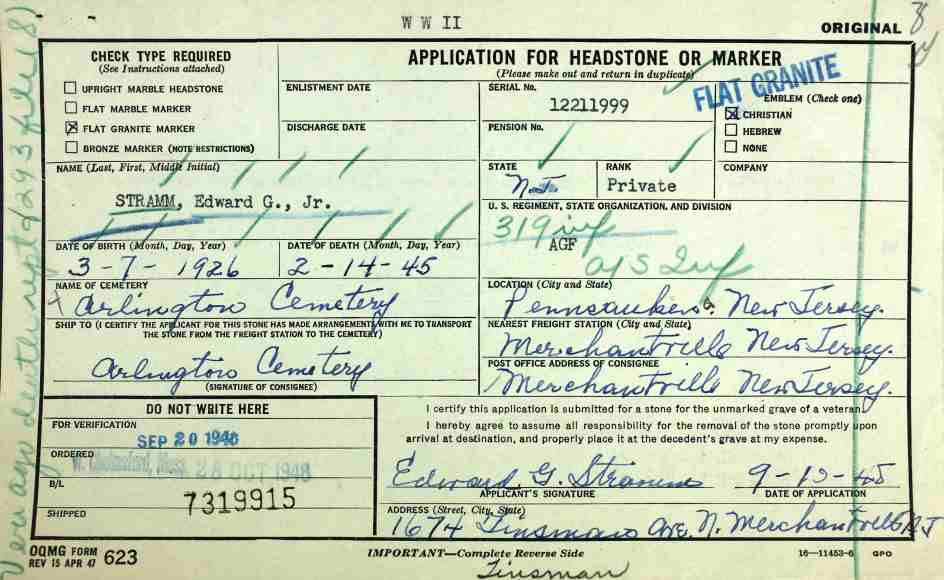 WW II
ORIGINAL
CHECK TYPE REQUIRED
(See Instructions attached)
UPRIGHT MARBLE HEADSTONE
FLAT MARBLE MARKER
FLAT GRANITE MARKER
BRONZE MARKER (NOTE RESTRICTIONS)
APPLICATION FOR HEADSTONE OR MARKER
(Please make out and return in duplicate)
FLAT GRANITE
ENLISTMENT DATE
DISCHARGE DATE
SERIAL No.
12211999
PENSION No.
EMBLEM (Check one)
CHRISTIAN
HEBREW
NONE
NAME (Last, First, Middle Initial)
STRAMM, Edward G., Jr.
STATE
N.J.
RANK
Private
COMPANY
U. S. REGIMENT, STATE ORGANIZATION, AND DIVISION
319 inf
AGF
Inf
DATE OF BIRTH (Month, Day, Year)
3-7-1926
DATE OF DEATH (Month, Day, Year)
2-14-45
NAME OF CEMETERY
Arlington Cemetery
LOCATION (City and State)
Pennsauken, New Jersey.
SHIP TO (I CERTIFY THE APPLICANT FOR THIS STONE HAS MADE ARRANGEMENTS WITH ME TO TRANSPORT
THE STONE FROM THE FREIGHT STATION TO THE CEMETERY)
Arlington Cemetery
(SIGNATURE OF CONSIGNEE)
NEAREST FREIGHT STATION (City and State)
Merchantville New Jersey.
POST OFFICE ADDRESS OF CONSIGNEE
Merchantville New Jersey.
DO NOT WRITE HERE
FOR VERIFICATION
SEP 20 1948
ORDERED
W. Chelmsford, Mass. 28 OCT 1948
B/L
7319915
SHIPPED
I certify this application is submitted for a stone for the unmarked grave of a veteran.
I hereby agree to assume all responsibility for the removal of the stone promptly upon
arrival at destination, and properly place it at the decedent's grave at my expense.
Edward G. Stramm
APPLICANT'S SIGNATURE
DATE OF APPLICATION
ADDRESS (Street, City, State)
1674 Tinsman Ave. N. Merchantville N.J
OQMG FORM
REV 15 APR 47 623
IMPORTANT—Complete Reverse Side
16—11453-6 GPO
Tinsman